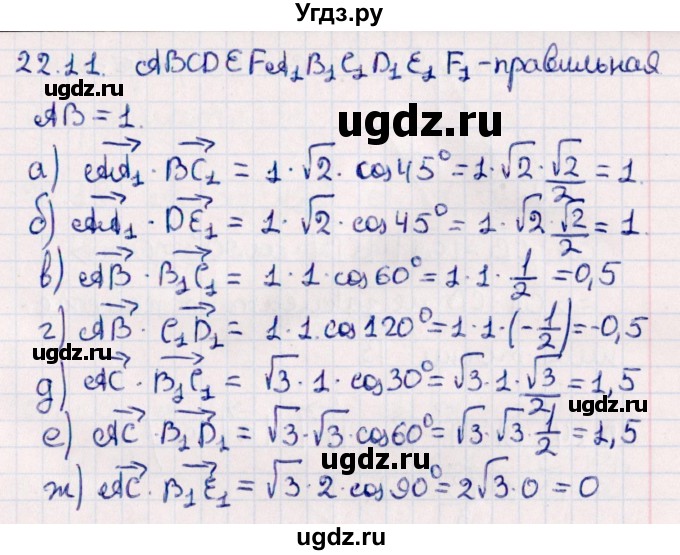 Угдз.ру
22.11. ABCDEFA₁B₁C₁D₁E₁F₁ - правильная
gdz.ru
AB = 1.
ugdz.ru
а) AA₁ · BC₁ = 1 · √2 · cos 45° = 1 · √2 · √2/2 = 1.
б) AA₁ · DE₁ = 1 · √2 · cos 45° = 1 · √2 · √2/2 = 1.
ugdz.ru
ugdz.ru
в) AB · B₁C₁ = 1 · 1 · cos 60° = 1 · 1 · 1/2 = 0,5
ugdz.ru
г) AB · C₁D₁ = 1 · 1 · cos 120° = 1 · 1 · (-1/2) = -0,5
д) AC · B₁C₁ = √3 · 1 · cos 30° = √3 · 1 · √3/2 = 1,5
ugdz.ru
ugdz.ru
е) AC · B₁D₁ = √3 · √3 · cos 60° = √3 · √3 · 1/2 = 1,5
ugdz.ru
ж) AC · B₁E₁ = √3 · 2 · cos 90° = 2√3 · 0 = 0
ugdz.ru